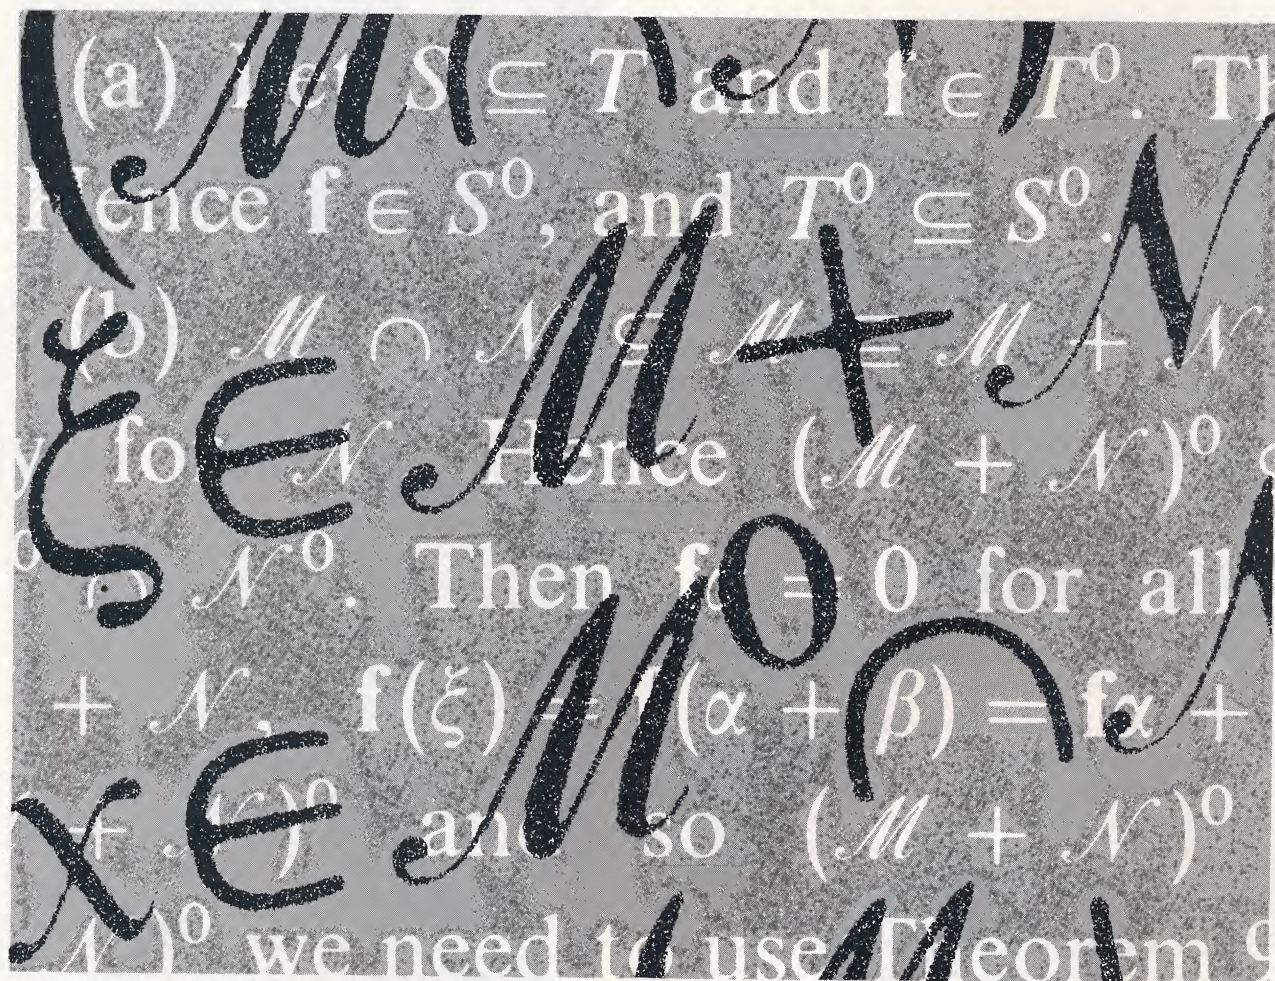 (a) Let S ⊆ T and f ∈ T⁰. Th
Hence f ∈ S⁰, and T⁰ ⊆ S⁰.
(b) ℳ ∩ 𝒩 ⊆ ℳ ⊆ ℳ + 𝒩
ξ ∈ ℳ + 𝒩
y for 𝒩 Hence (ℳ + 𝒩)⁰
𝒩⁰. Then = 0 for all
+ 𝒩, f(ξ) = f(α + β) = fα +
x ∈ ℳ⁰ ∩
+ 𝒩)⁰ and so (ℳ + 𝒩)⁰
𝒩)⁰ we need to use Theorem 9